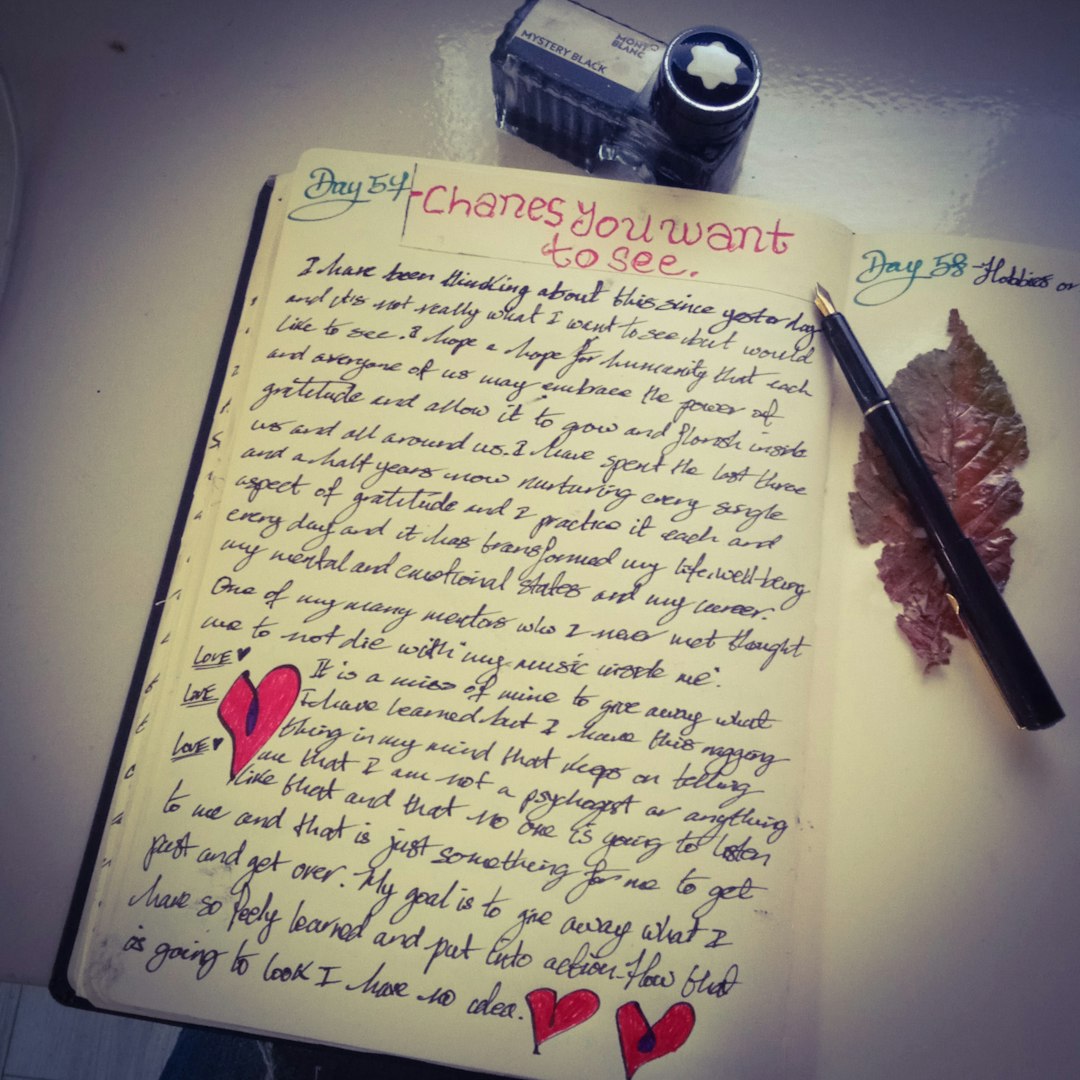 MYSTERY BLACK
MONT
BLANC
Day 57
-Chanes You want
to see.
I have been thinking about this since yesterday
and its not really what I want to see but would
like to see. I hope a hope for humanity that each
and everyone of us may embrace the power of
gratitude and allow it to grow and florish inside
us and all around us. I have spent the last three
and a half years now nurturing every single
aspect of gratitude and I practice it each and
every day and it has transformed my life, well-being
my mental and emotional states and my career.
One of my many mentors who I never met thought
me to not die with "my music inside me".
LOVE
It is a miso of mine to give away what
LOVE
I have learned but I have this nagging
LOVE
thing in my mind that keeps on telling
me that I am not a psychogist or anything
like that and that no one is going to listen
to me and that is just something for me to get
past and get over. My goal is to give away what I
have so feely learned and put into action. How that
is going to look I have no idea.
Day 58 - Hobbies or